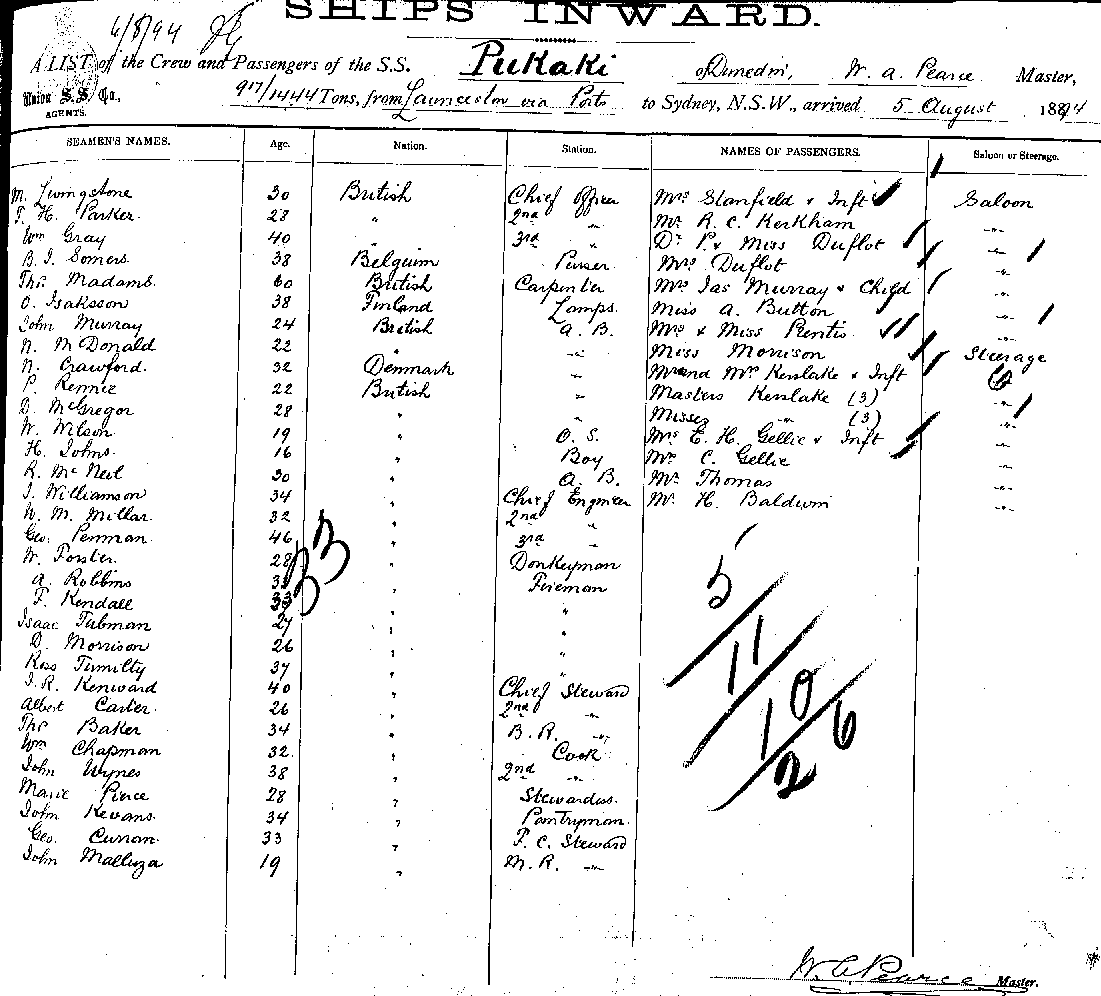 SHIPS INWARD.
6/8/94
A LIST of the Crew and Passengers of the S.S. Pukaki of Dunedin, W. A. Pearce Master,
Union S.S. Co., 917/1444 Tons, from Launceston via Ports to Sydney, N.S.W., arrived 5 August 1894
AGENTS.
SEAMEN'S NAMES. Age. Nation. Station. NAMES OF PASSENGERS. Saloon or Steerage.
M. Livingstone 30 British Chief Officer Mrs Stanfield & Inft Saloon
T. H. Parker 28 " 2nd " Mr R. C. Kerkham "
Wm Gray 40 " 3rd " Dr P. & Miss Duflot "
B. J. Somers 38 Belguim Purser Mrs Duflot "
Thos Madams 60 British Carpenter Mrs Jas Murray & Child "
O. Isaksson 38 Finland Lamps Miss A. Button "
John Murray 24 British A. B. Mrs & Miss Prentis "
N. McDonald 22 " " Miss Morrison Steerage
N. Crawford 32 Denmark " Mr and Mrs Kerslake & Inft 6
P. Rennie 22 British " Masters Kerslake (3) "
D. McGregor 28 " " Misses " (3) "
W. Wilson 19 " O. S. Mrs E. H. Gellie & Inft "
H. Johns 16 " Boy Mr C. Gellie "
R. McNeil 30 " A. B. Mr Thomas "
J. Williamson 34 " Chief Engineer Mr H. Baldwin "
W. M. Millar 32 " 2nd "
Geo. Penman 46 " 3rd "
W. Forster 28 " Donkeyman
A. Robbins " Fireman
T. Kendall 33 " "
Isaac Tubman 27 " "
D. Morrison 26 " "
Ross Tumilty 37 " "
J. R. Kenward 40 " Chief Steward
Albert Carter 26 " 2nd "
Thos Baker 34 " B. R. "
Wm Chapman 32 " Cook
John Wynes 38 " 2nd "
Marie Pierce 28 " Stewardess
John Kevans 34 " Pantryman
Geo. Curran 33 " F. C. Steward
John Malluza 19 " M. R. "
33
5
11
10
26
W. A. Pearce Master.